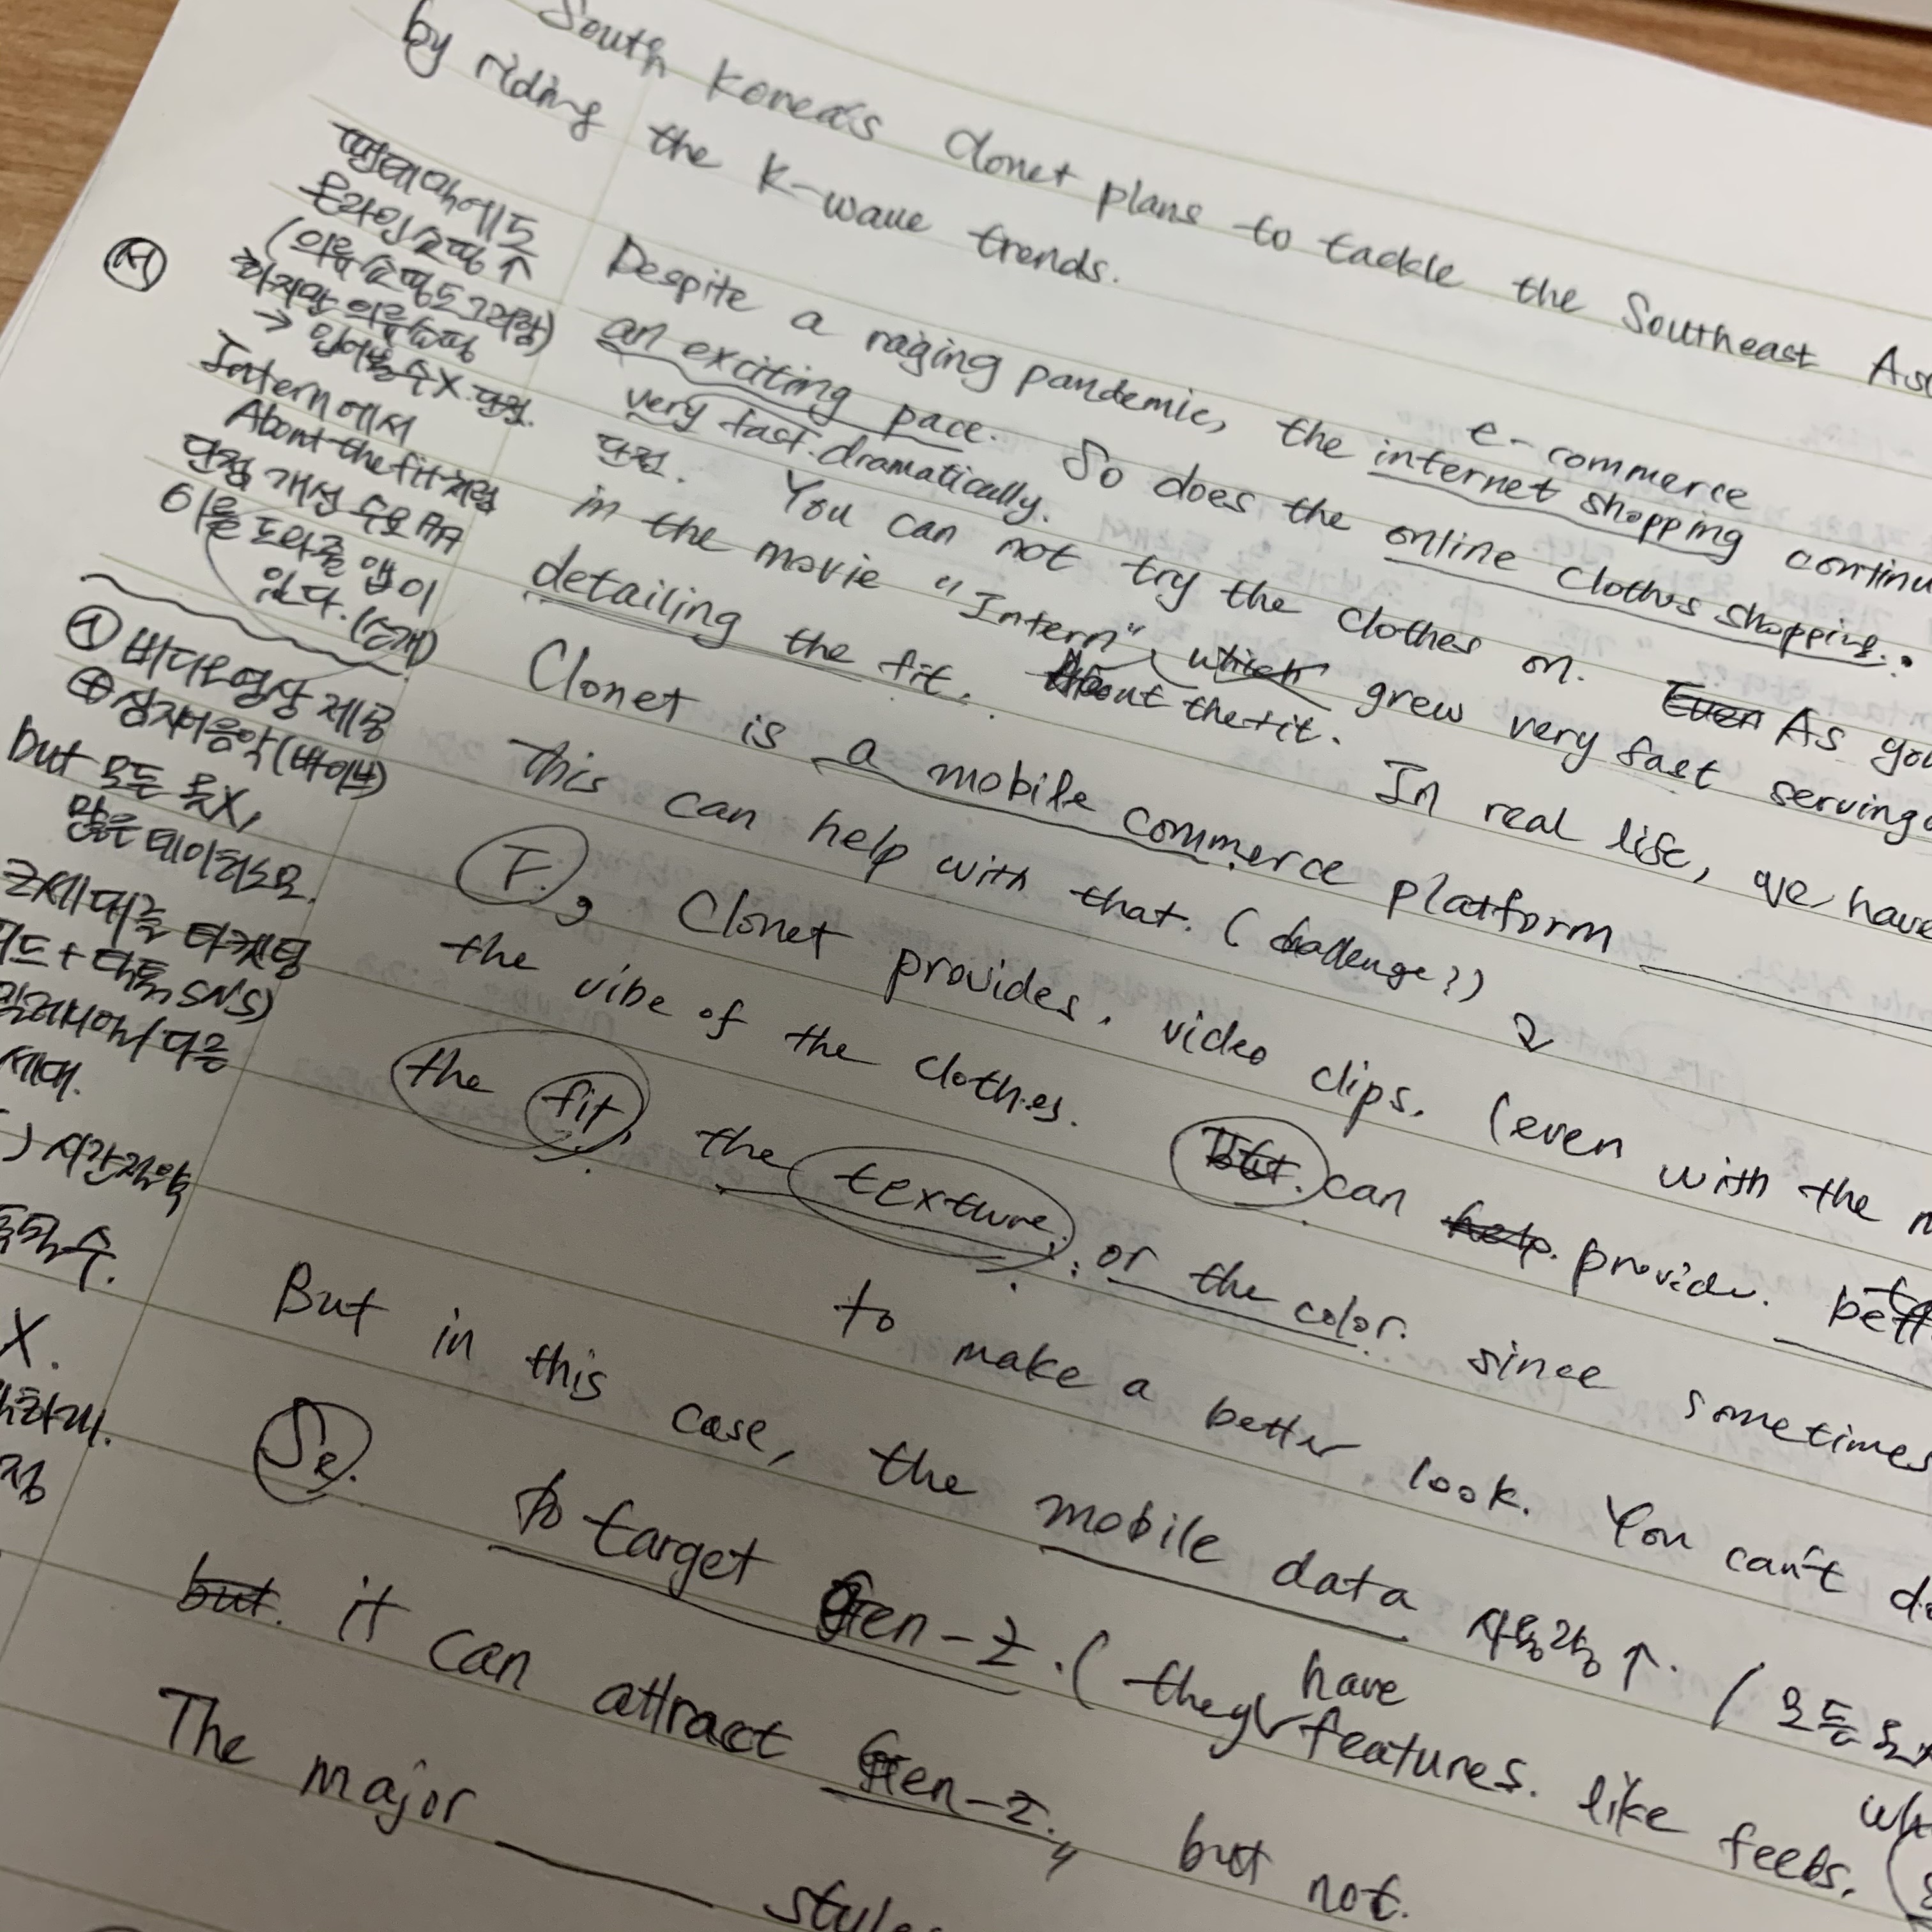 South Korea's Clonet plans to tackle the Southeast
by riding the K-wave trends.
팬데믹에도
온라인쇼핑↑
(의류쇼핑도 그러함)
하지만 의류쇼핑
→ 입어볼수X 단점.
서
Intern에서
About the fit처럼
단점 개선 수요
이를 도와줄 앱이
있다. (소개)
① 비디오영상 제공
⊕ 심지어 음악 (바이브)
but 모든 옷X,
많은 데이터소모.
Z세대를 타케팅
피드 + 단톡, SNS)
밀레니얼/다음
세대.
) 시간절약
X.
e-commerce
Despite a raging pandemic, the internet shopping
an exciting pace. So does the online clothes shopping.
very fast. dramatically.
단점. You can not try the clothes on. Even As you
in the movie "Intern", which grew very fast serving
detailing the fit. About the fit. In real life, we have
Clonet is a mobile commerce platform
This can help with that. (challenge?)
T. Clonet provides. video clips. (even with the
the vibe of the clothes. But. can help. provide.
the fit, the texture, or the color. since sometimes
to make a better look. You can't
But in this case, the mobile data 사용량↑. (모든
So. to target Gen-Z. (they have features. like feeds.
but. it can attract Gen-Z., but not.
The major